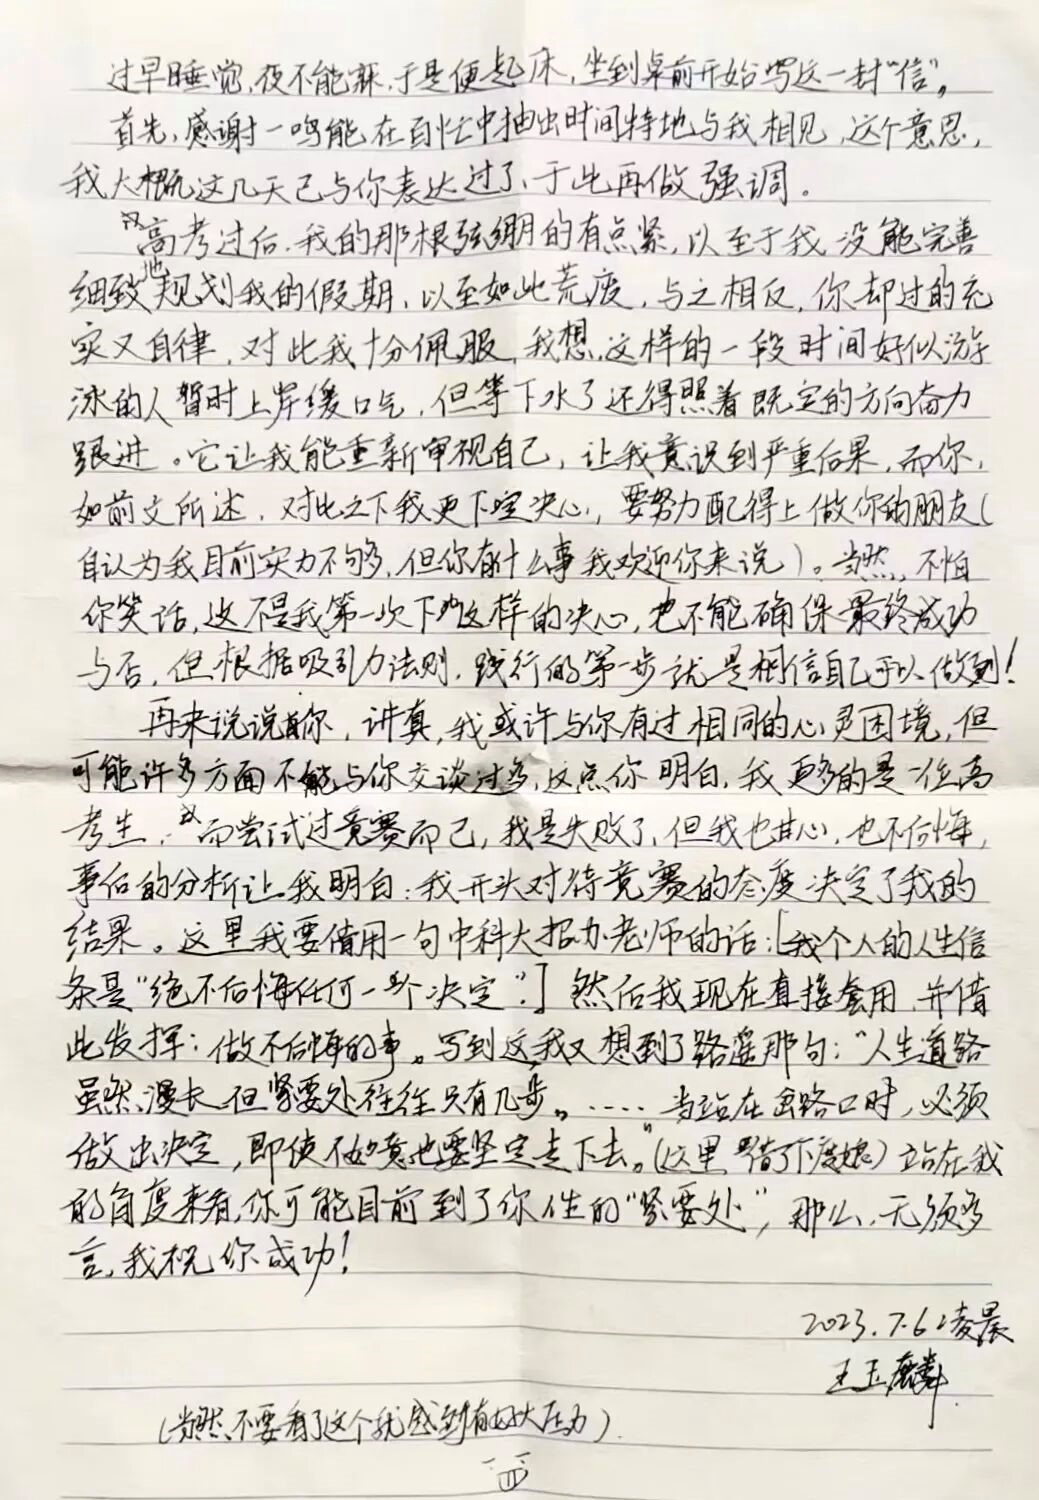 过早睡觉,夜不能寐,于是便起床,坐到桌前开始写这一封“信”。
首先,感谢一鸣能在百忙中抽出时间特地与我相见,这个意思,
我大概这几天已与你表达过了,于此再做强调。
高考过后,我的那根弦绷的有点紧,以至于我没能完善
细致地规划我的假期,以至如此荒废,与之相反,你却过的充
实又自律,对此我十分佩服,我想,这样的一段时间好似游
泳的人暂时上岸缓口气,但等下水了还得照着既定的方向奋力
跟进。它让我能重新审视自己,让我意识到严重后果,而你,
如前文所述,对比之下我更下定决心,要努力配得上做你的朋友(
自认为我目前实力不够,但你有什么事我欢迎你来说)。当然,不怕
你笑话,这不是我第一次下这样的决心,也不能确保最终成功
与否,但根据吸引力法则,践行的第一步就是相信自己可以做到!
再来说说你,讲真,我或许与你有过相同的心灵困境,但
可能许多方面不能与你交谈过多,这点你明白,我更多的是一位高
考生,而尝试过竞赛而已,我是失败了,但我也甘心,也不后悔,
事后的分析让我明白:我开头对待竞赛的态度决定了我的
结果。这里我要借用一句中科大招办老师的话:[我个人的人生信
条是“绝不后悔任何一个决定”.]然后我现在直接套用,并借
此发挥:做不后悔的事。写到这我又想到了路遥那句:“人生道路
虽然漫长,但紧要处往往只有几步。……当站在岔路口时,必须
做出决定,即使不如意也要坚定走下去。”(这里借了下度娘)站在我
的角度来看,你可能目前到了你人生的“紧要处”,那么,无须多
言,我祝你成功!
2023.7.6凌晨
王玉麟
(当然,不要看了这个就感到有好大压力)
四